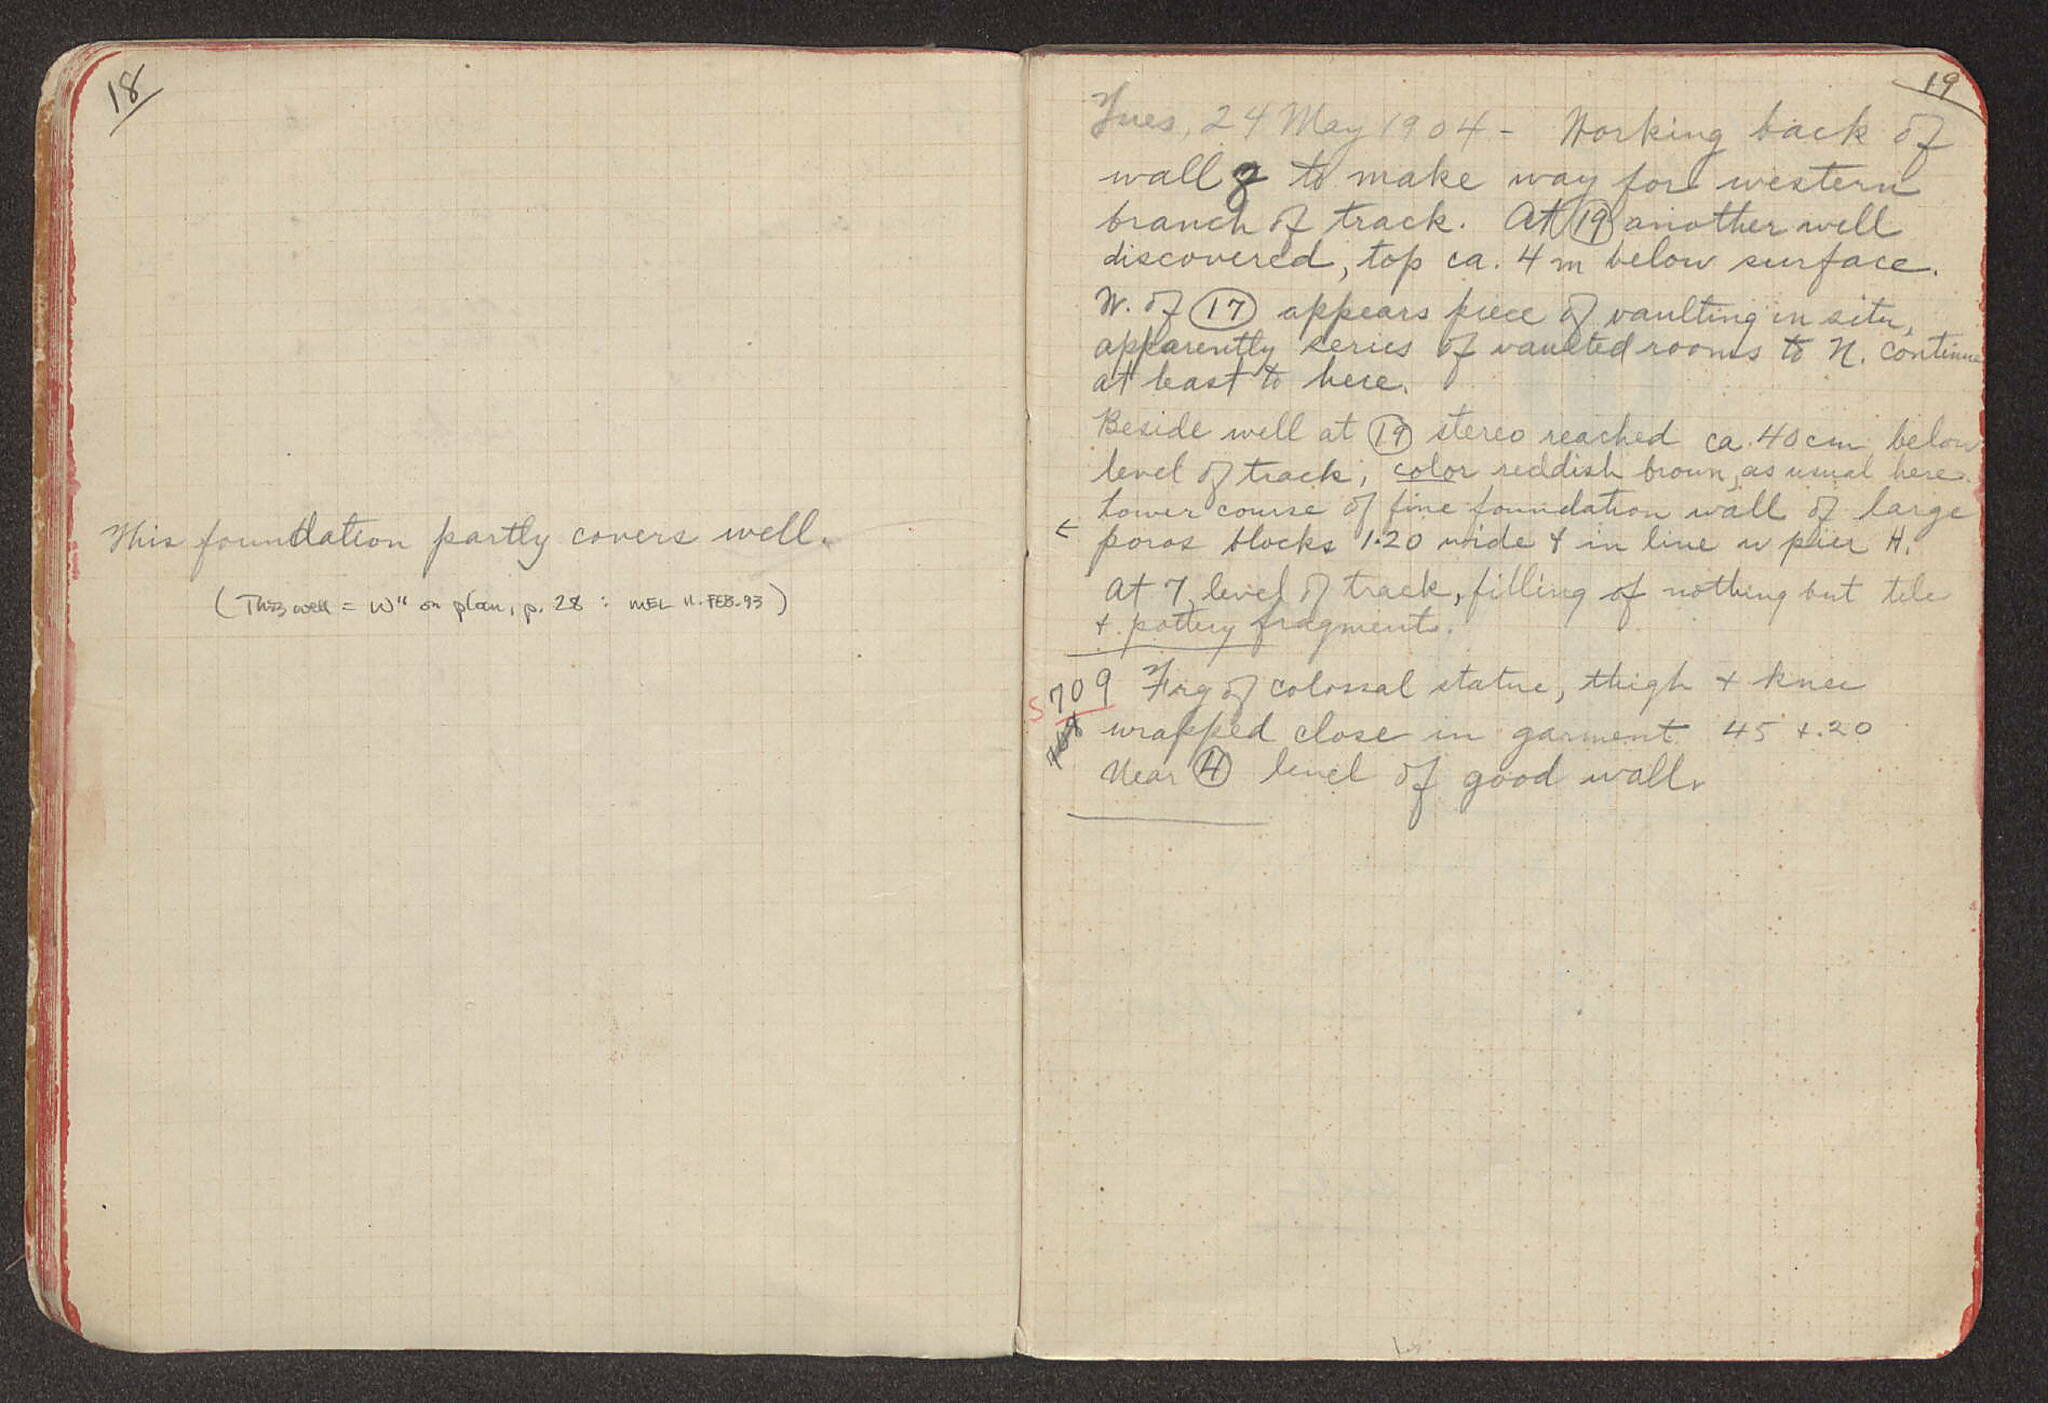 18
This foundation partly covers well.
(This well = W" on plan, p. 28 : MEL 11. FEB. 93)
19
Tues, 24 May 1904 - Working back of
wall to make way for western
branch of track. At 19 another well
discovered, top ca. 4 m below surface.
W. of 17 appears piece of vaulting in situ,
apparently series of vaulted rooms to N. continue
at least to here.
Beside well at 19 stereo reached ca. 40 cm below
level of track; color reddish brown, as usual here.
Lower course of fine foundation wall of large
← poros blocks 1.20 wide & in line w pier H.
At 7 level of track, filling of nothing but tile
+ pottery fragments.
S 709 Frg of colossal statue, thigh + knee
wrapped close in garment 45 +.20
Near H level of good wall.